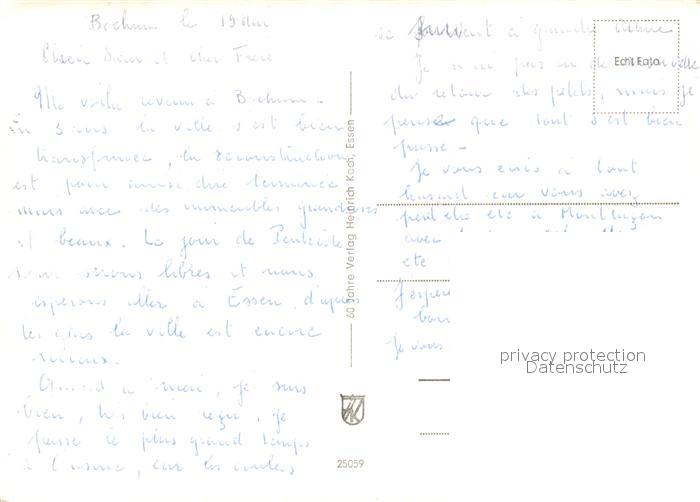 Bochum le 19 Mai
Chère Soeur et cher Frère
Me voilà revenu à Bochum.
En 3 ans la ville s'est bien
transformée, la reconstruction
est pour ainsi dire terminée
mais avec des immeubles grandioses
et beaux. Le jour de Pentecôte
nous serons libres et nous
espérons aller à Essen, d'après
les gens la ville est encore
mieux.
Quand à moi, je suis
bien, très bien reçu, je
passe le plus grand temps
à l'usine, car les coulées
se suivent à grande allure
Je n'ai pas eu de nouvelle
du retour des petits, mais je
pense que tout s'est bien
passé -
Je vous écris à tout
hasard car vous avez
peut être été à Montluçon
avec
été
J'espère
bon
Je vous
Echt Foto
60 Jahre Verlag Heinrich Koch, Essen
25059
privacy protection
Datenschutz